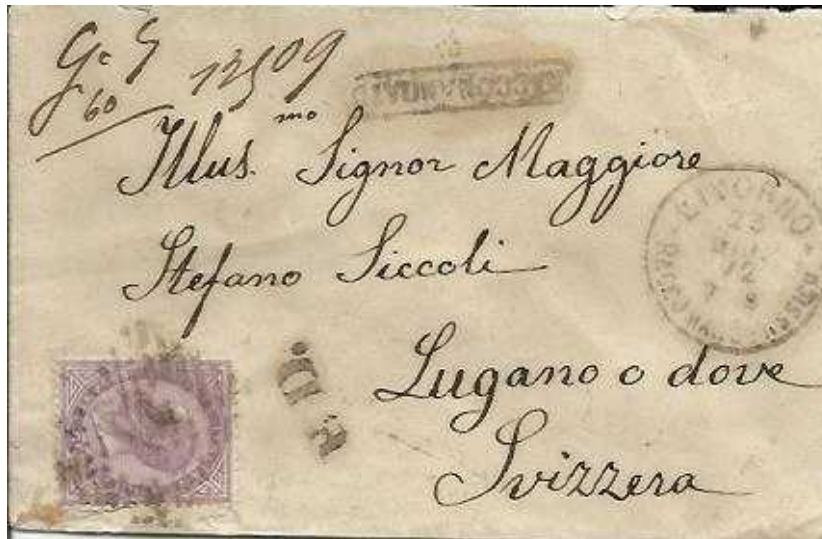 60
12509
Illus.mo Signor Maggiore
Stefano Siccoli
Lugano o dove
Svizzera
LIVORNO
23
72
P.D.